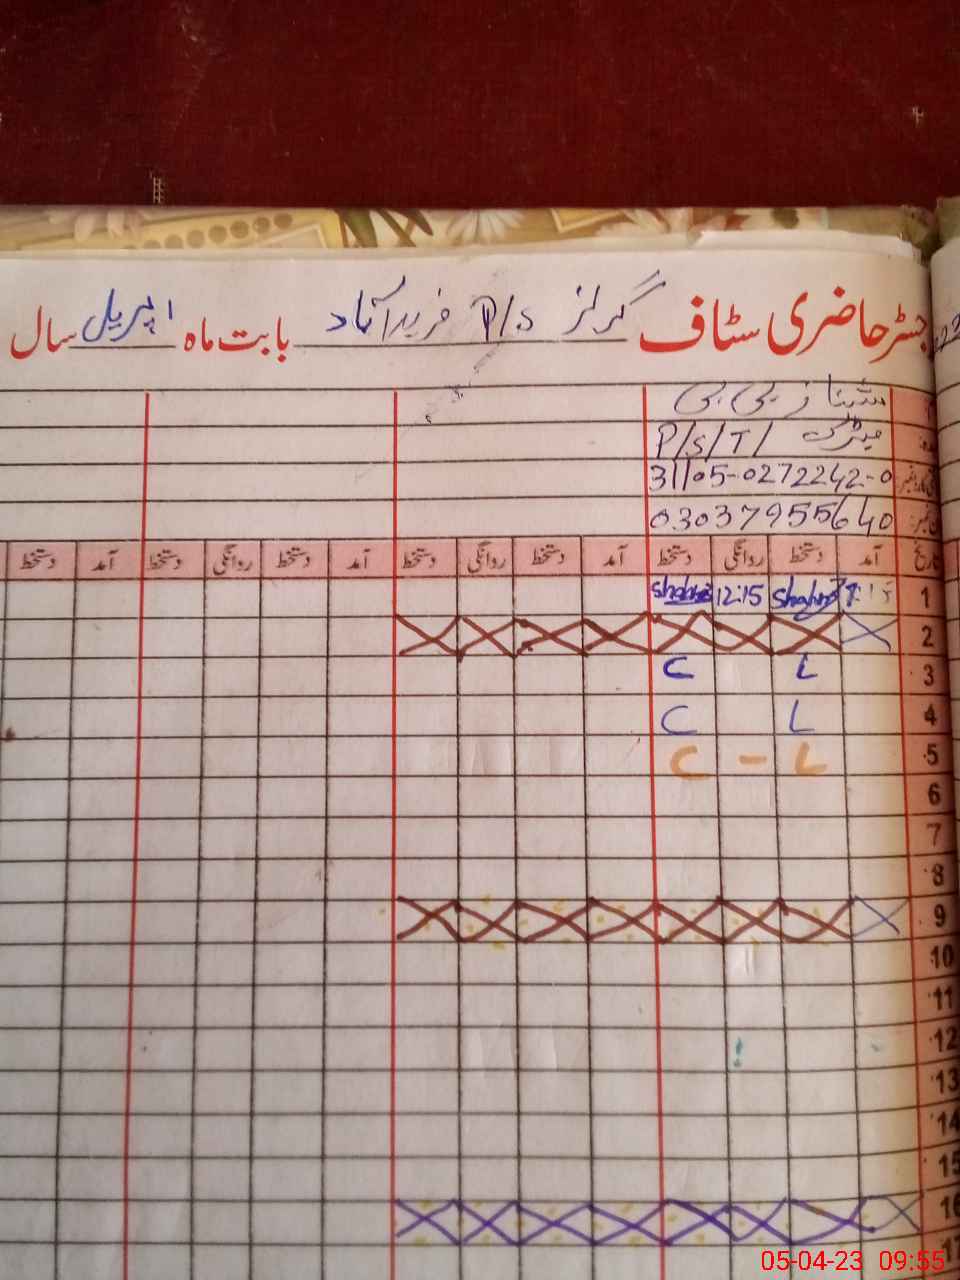 رجسٹر حاضری سٹاف گرلز P/S فریدآباد بابت ماہ اپریل سال
شہناز بی بی
میٹرک P/S/T/
31105-0272242-0
03037955640
تاریخ آمد دستخط روانگی دستخط آمد دستخط روانگی دستخط آمد دستخط روانگی دستخط آمد دستخط
1 7:15 Shahnaz 12:15 Shahnaz
2
3 L C
4 L C
5 L - C
6
7
8
9
10
11
12
13
14
15
16
17
05-04-23 09:55